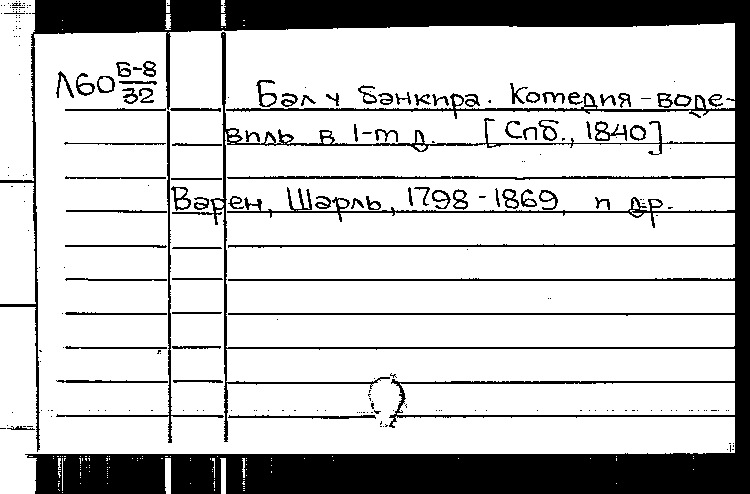 Л60 Б-8/32
Бал у банкира. Комедия-воде-
виль в 1-м д. [Спб., 1840]
Варен, Шарль, 1798-1869, и др.